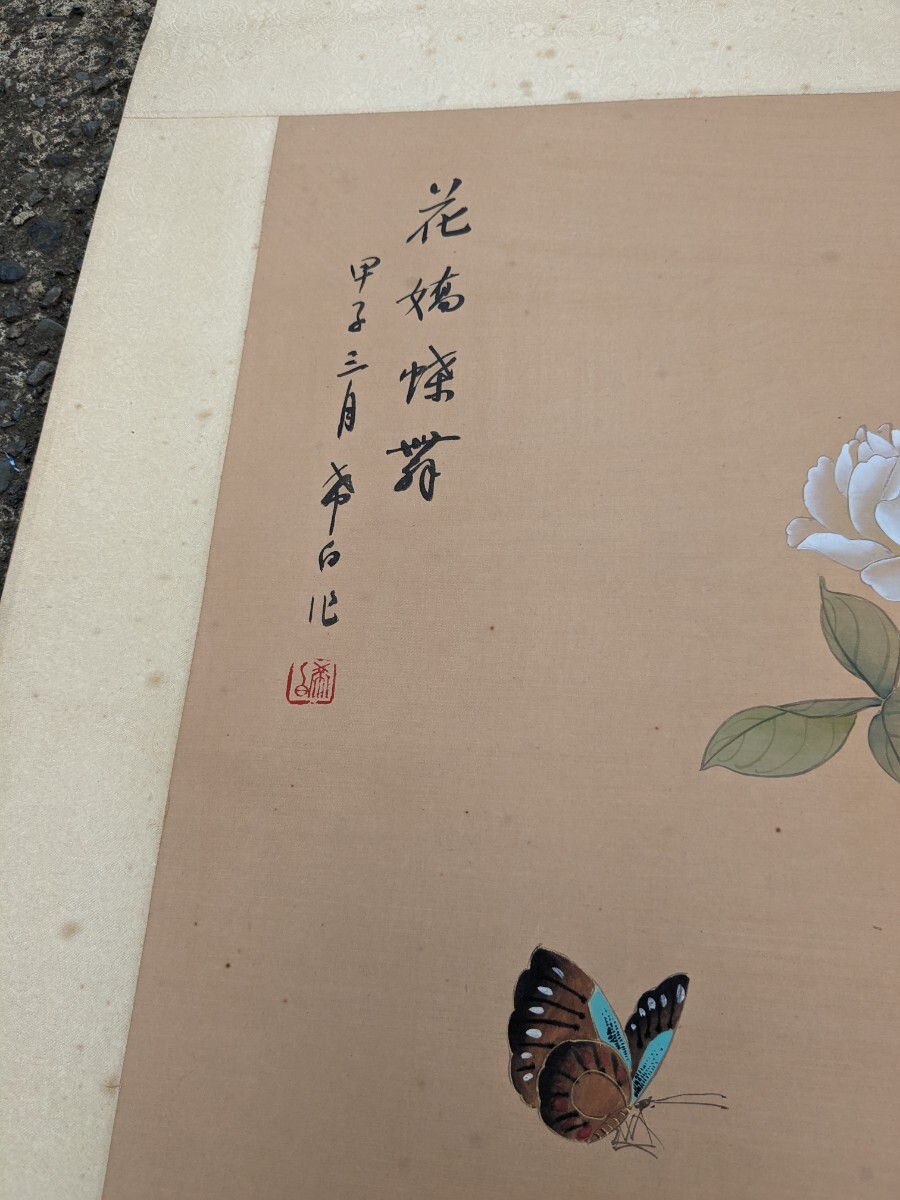 花嬌蝶舞
甲子三月希白作
希白